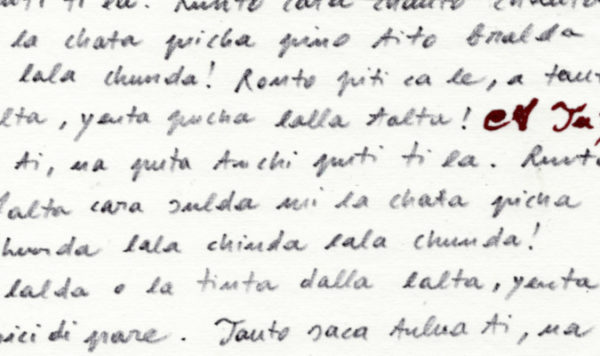 ti la. Runto cara chanto
la chata pricha pino Aito Bnalda
lala chunda! Ronto piti ca le, a tant
lta, yenta pucha lalla talta! Tu
Ai, na puta Anchi puti ti la. Runto
alta cara sulda mi la chata picha
hunda lala chinda lala chunda!
lalda o la tinta dalla lalta, yenta
pici di pare. Tanto saca Anlua Ai, na